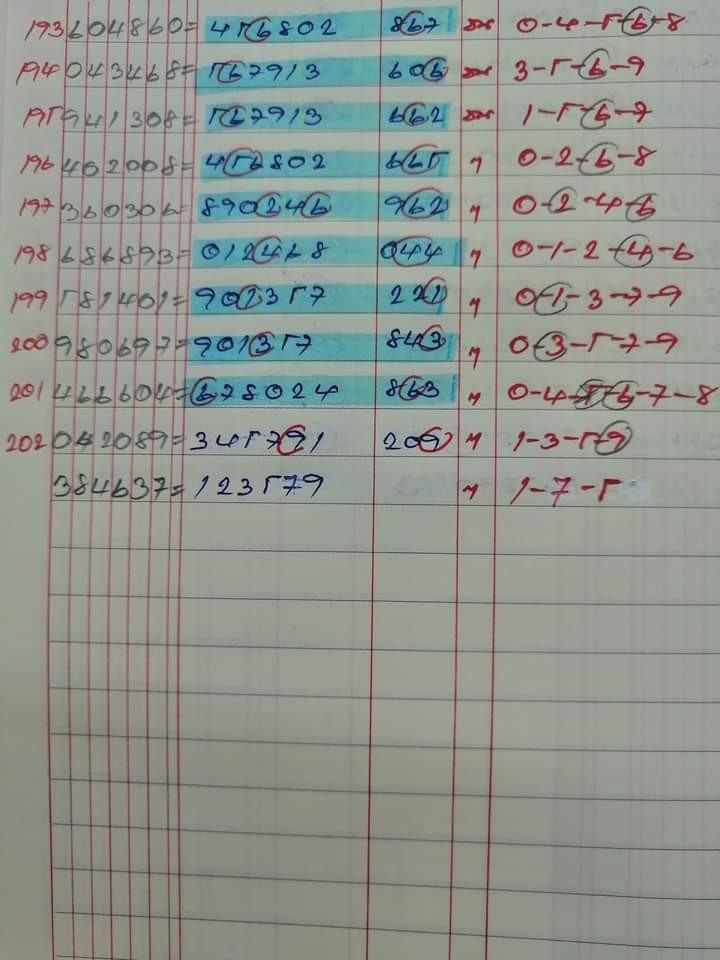 193 604860 = 456802 867 " 0-4-5-6-8
194 043468 = 567913 606 " 3-5-6-9
195 941308 = 567913 662 " 1-5-6-7
196 402008 = 456802 665 " 0-2-6-8
197 360306 = 890246 962 " 0-2-4-6
198 686893 = 012468 044 " 0-1-2-4-6
199 581401 = 901357 221 " 0-1-3-7-9
200 980697 = 901357 843 " 0-3-5-7-9
201 466604 = 678024 863 " 0-4-5-6-7-8
202 042089 = 345791 209 " 1-3-5-9
384637 = 123579 " 1-7-5